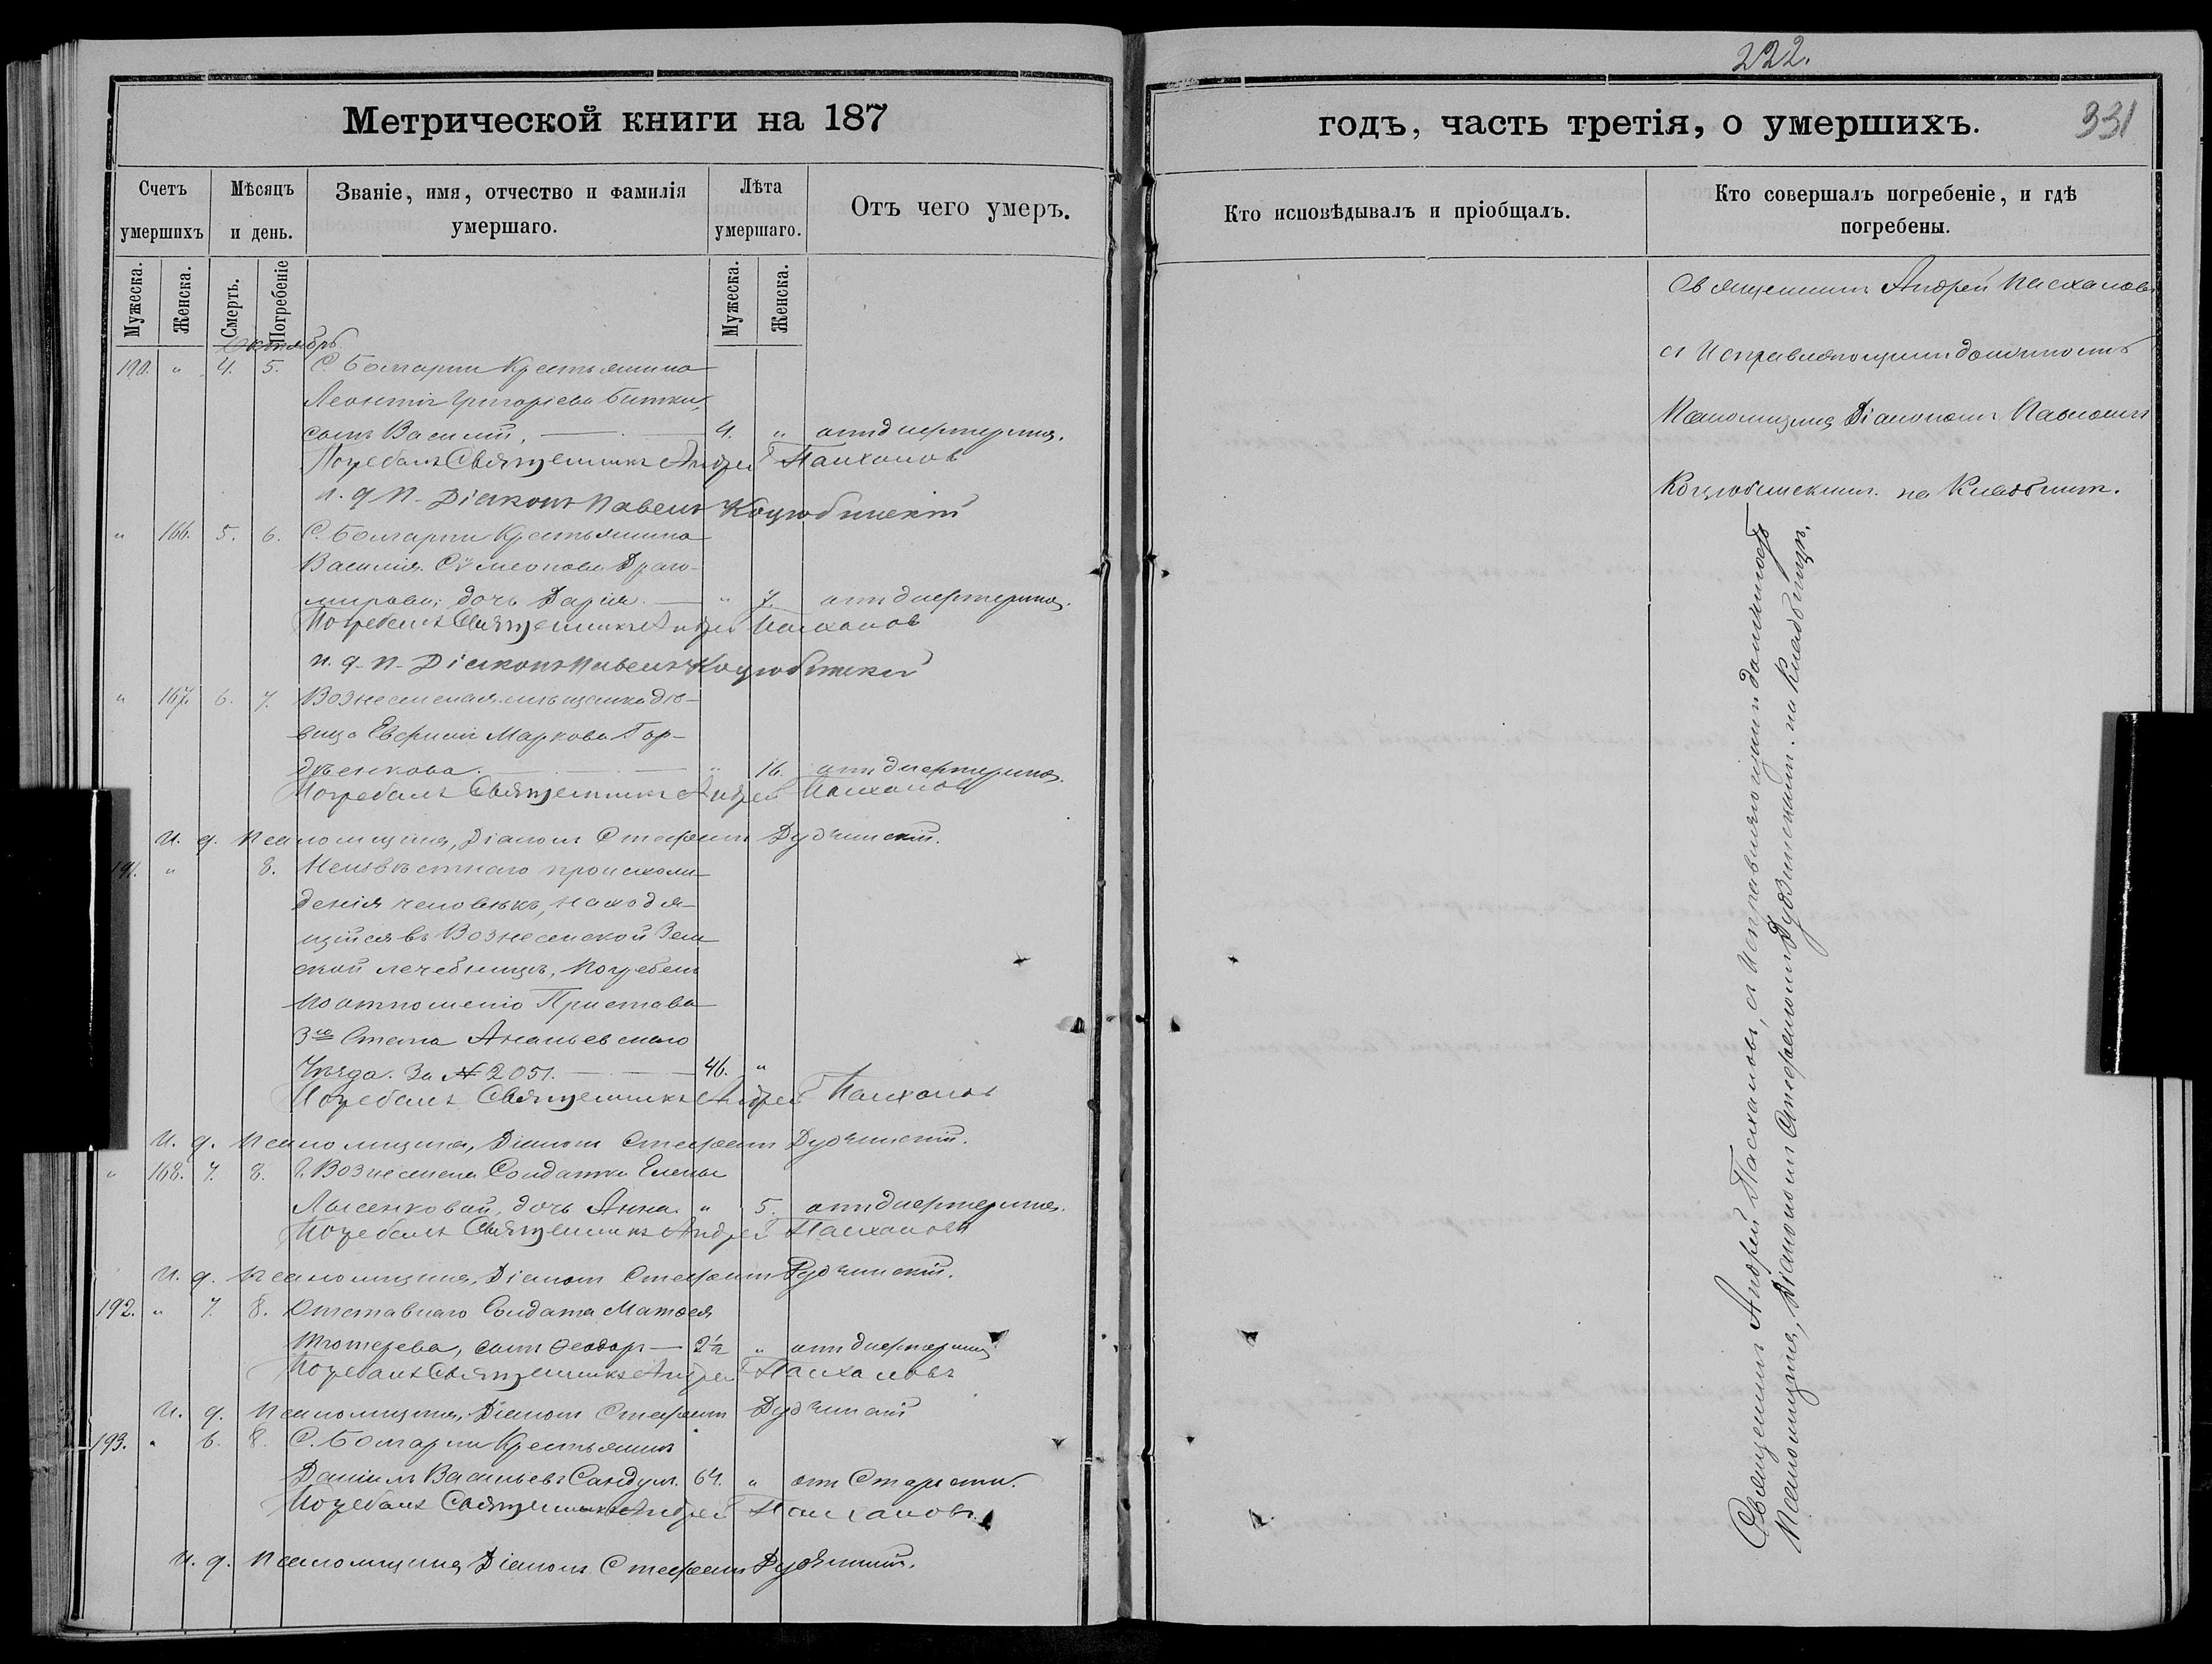 222.
331
Метрической книги на 187
годъ, часть третія, о умершихъ.
Счетъ умершихъ
Мѣсяцъ и день.
Званіе, имя, отчество и фамилія умершаго.
Лѣта умершаго.
Отъ чего умеръ.
Кто исповѣдывалъ и пріобщалъ.
Кто совершалъ погребеніе, и гдѣ погребены.
Мужеска.
Женска.
Смерть.
Погребеніе
Мужеска.
Женска.
Октябрь.
190. " 4. 5. С. Болгарки Крестьянина
Леонтія Григоріева Битки,
сынъ Василій, 4. " отъ дифтерита.
Погребалъ Священникъ Андрей Пасхаловъ
и. д. п. Діаконъ Павелъ Коцюбинскій
" 166. 5. 6. С. Болгарки Крестьянина
Василія Сѵмеонова Драго-
мирова, дочь Дарія. " 7. отъ дифтерита.
Погребалъ Священникъ Андрей Пасхаловъ
и. д. п. Діаконъ Павелъ Коцюбинскій
" 167. 6. 7. Вознесенская мѣщанка дѣ-
вица Евфимія Маркова Гор-
дѣенкова. " 16. отъ дифтерита.
Погребалъ Священникъ Андрей Пасхаловъ
И. д. Псаломщика, Діаконъ Стефанъ Дудзинскій.
191. " 8. Неизвѣстнаго происхож-
денія человѣкъ, находя-
щійся въ Вознесенской Зем-
ской лечебницѣ, погребенъ
по отношенію Пристава
3го Стана Ананьевскаго
Уѣзда. За № 2051. 46. "
Погребалъ Священникъ Андрей Пасхаловъ
И. д. Псаломщика, Діаконъ Стефанъ Дудзинскій.
" 168. 7. 8. Г. Вознесенска Солдатки Елены
Лысенковой, дочь Анна. " 5. отъ дифтерита.
Погребалъ Священникъ Андрей Пасхаловъ
И. д. Псаломщика, Діаконъ Стефанъ Дудзинскій.
192. " 7. 8. Отставнаго Солдата Матѳея
сынъ Ѳеодоръ 2½ " отъ дифтерита
Погребалъ Священникъ Андрей Пасхаловъ
И. д. Псаломщика, Діаконъ Стефанъ Дудзинскій
193. " 6. 8. С. Болгарки Крестьянинъ
Даніилъ Васильевъ Сандулъ. 64. " отъ Старости.
Погребалъ Священникъ Андрей Пасхаловъ.
И. д. Псаломщика Діаконъ Стефанъ Дудзинскій.
Священникъ Андрей Пасхаловъ
съ Исправляющимъ должность
Псаломщика Діакономъ Павломъ
Коцюбинскимъ. на Кладбищѣ.
Священникъ Андрей Пасхаловъ, съ Исправляющимъ должность
Псаломщика, Діакономъ Стефаномъ Дудзинскимъ. на Кладбищѣ.